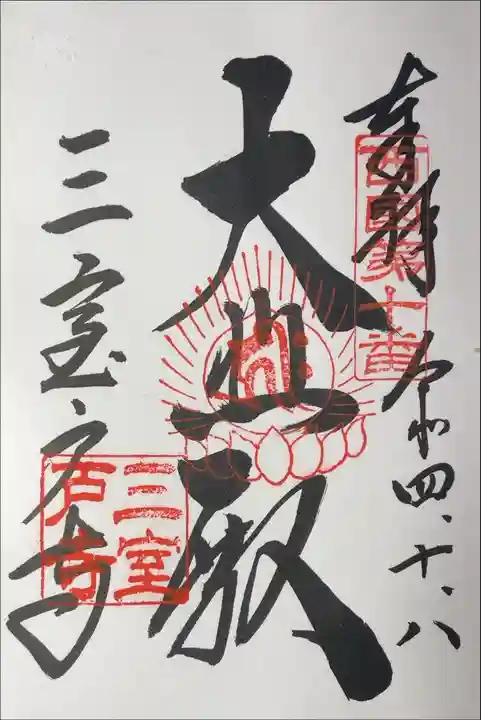 奉拝
西國第十番
令和四、十、八
大悲殿
三室戸寺
三室
戸寺